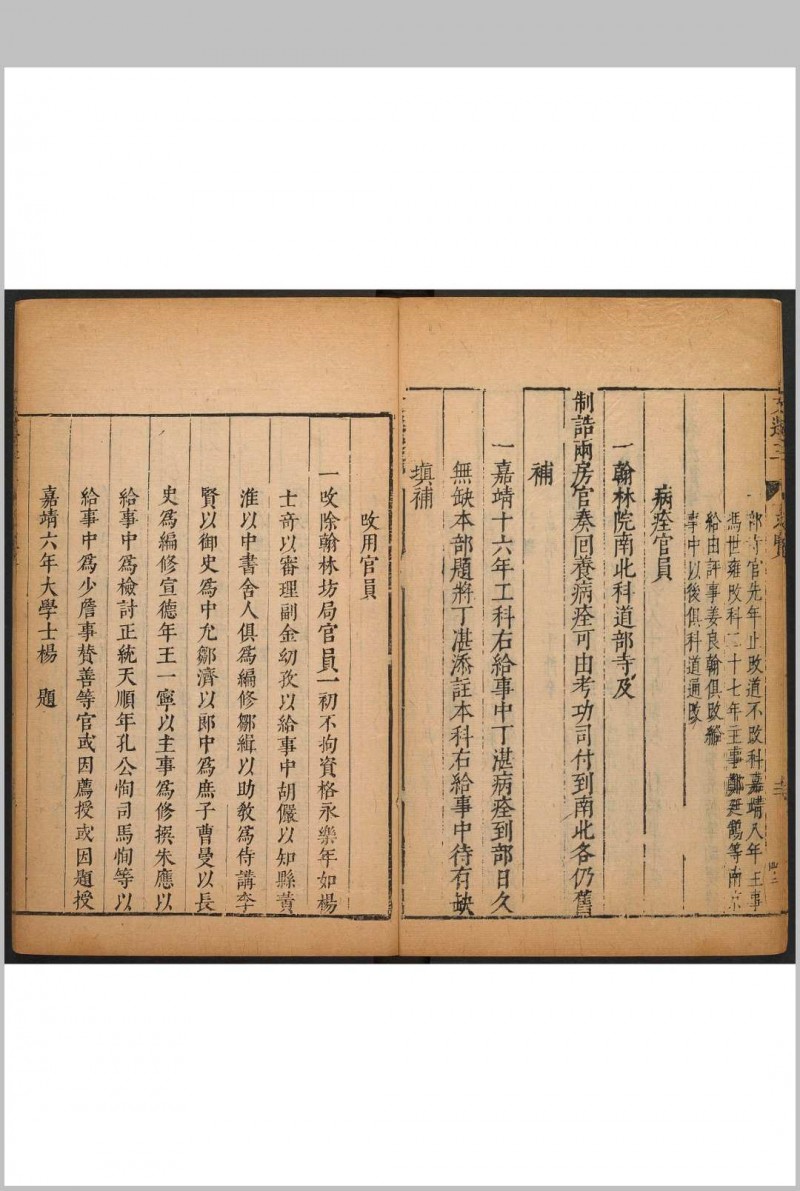 部寺官先年止改道不改科嘉靖八年主事
馮世雍改科二十七年主事鄭廷鵠等南京
給由評事姜良翰俱改給
事中以後俱科道通改
病痊官員
一翰林院南北科道部寺及
制誥兩房官奏回養病痊可由考功司付到南北各仍舊
補
一嘉靖十六年工科右給事中丁湛病痊到部日久
無缺本部題將丁湛添註本科右給事中待有缺
塡補
改用官員
一改除翰林坊局官員一初不拘資格永樂年如楊
士奇以審理副金幼孜以給事中胡儼以知縣黃
淮以中書舍人俱爲編修鄒緝以助教爲侍講李
賢以御史爲中允鄒濟以郎中爲庶子曹曼以長
史爲編修宣德年王一寧以主事爲修撰朱應以
給事中爲檢討正統天順年孔公恂司馬恂等以
給事中爲少詹事贊善等官或因薦授或因題授
嘉靖六年大學士楊　題